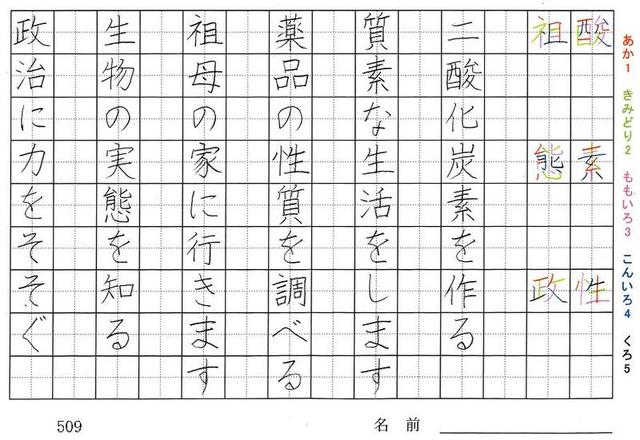 あか1 きみどり2 ももいろ3 こんいろ4 くろ5
酸 素 性
祖 態 政
二酸化炭素を作る
質素な生活をします
薬品の性質を調べる
祖母の家に行きます
生物の実態を知る
政治に力をそそぐ
509 名前